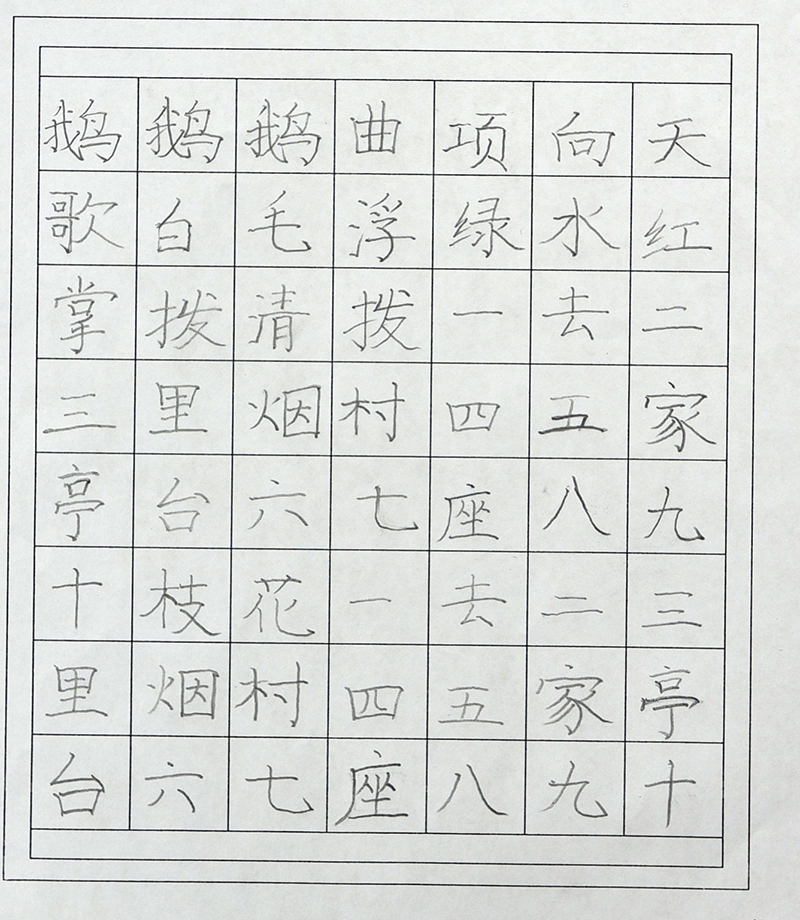 鹅鹅鹅曲项向天
歌白毛浮绿水红
掌拨清拨一去二
三里烟村四五家
亭台六七座八九
十枝花一去二三
里烟村四五家亭
台六七座八九十